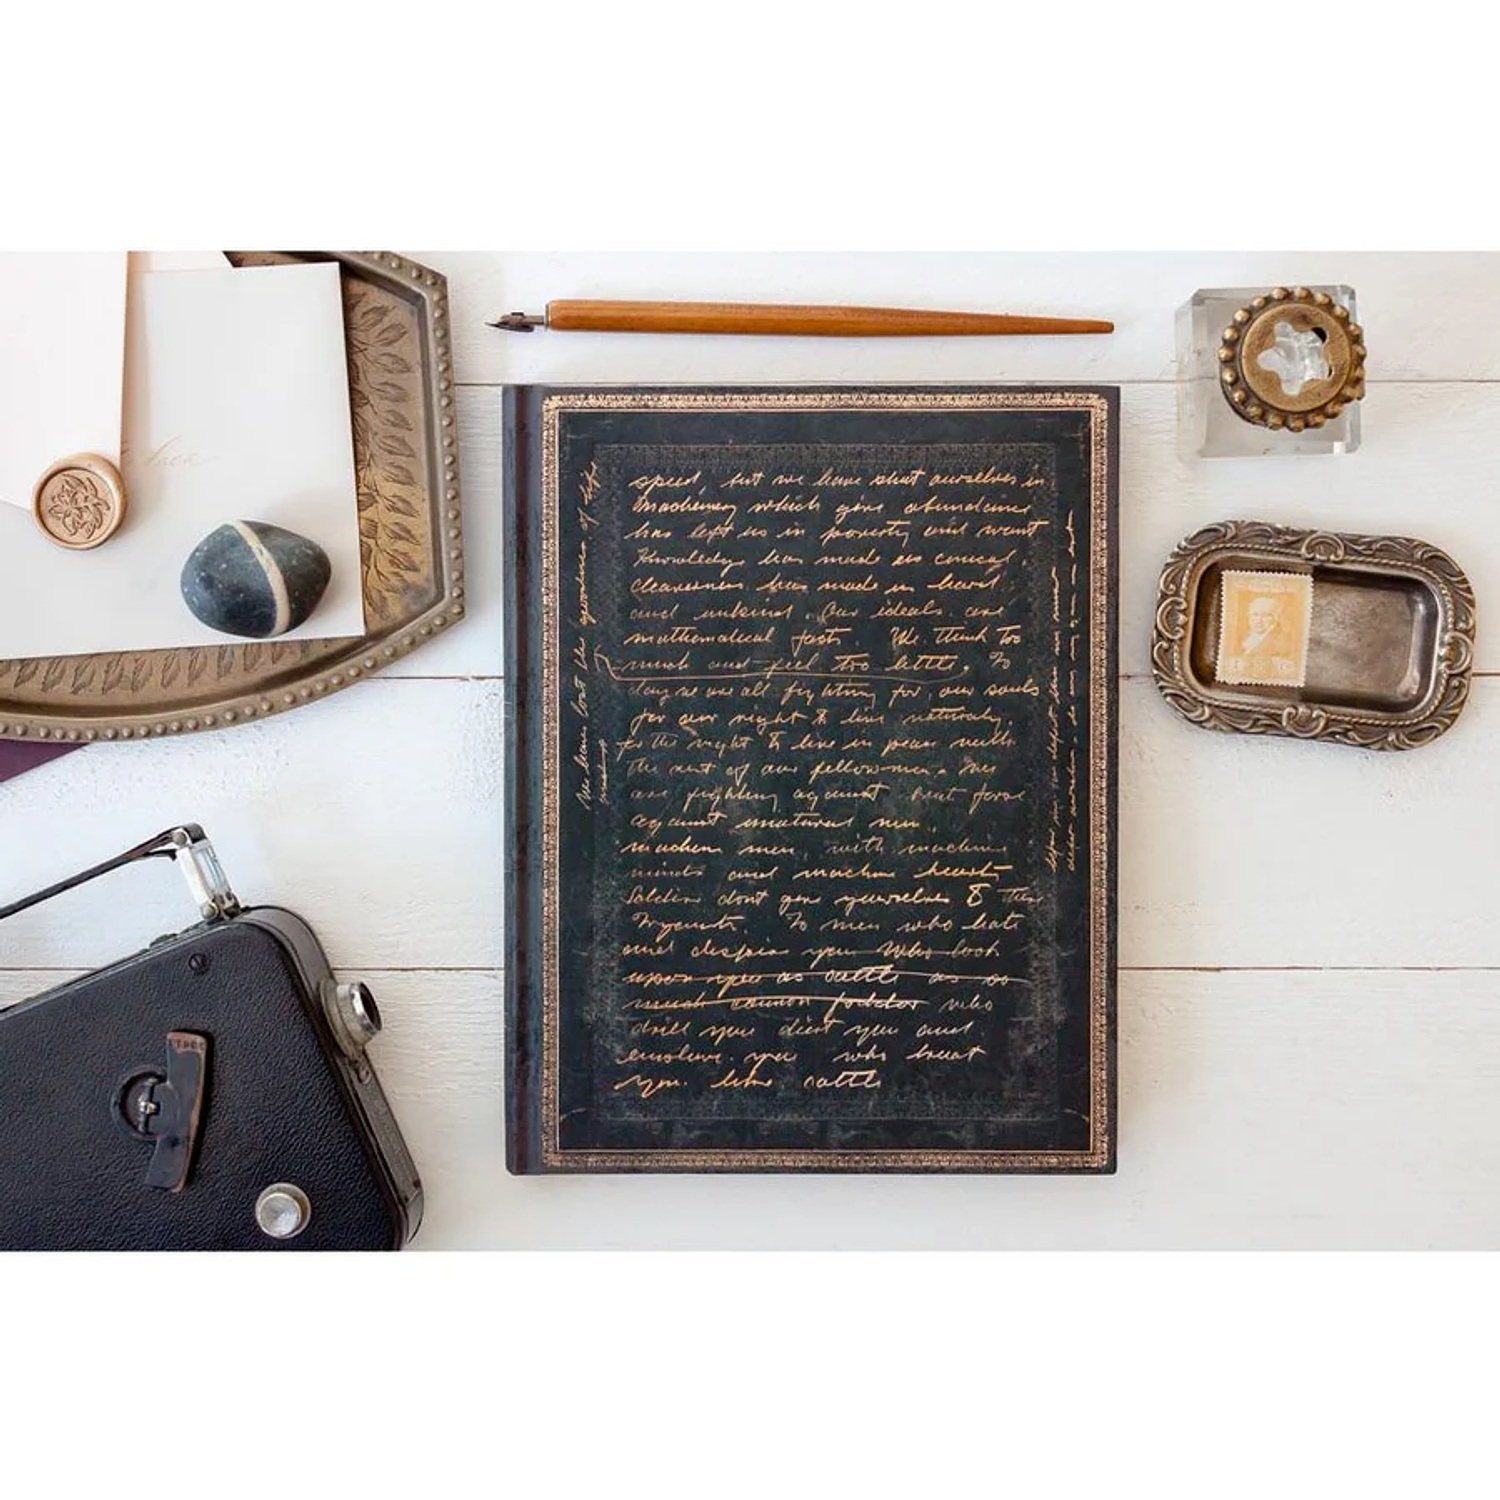 speed, but we have shut ourselves in
Machinery which give abundance
has left us in poverty and want
Knowledge has made us
cleverness has made us hard
and unkind. Our ideals are
mathematical facts. We think too
much and feel too little. To
day we are all fighting for, our souls
for our right to live naturaly.
for the right to live in peace with
the rest of our fellowmen. We
are fighting against brut force
against unatural men.
machine men, with machine
minds and machine hearts
Soldiers dont give yourselves to these
To men who hate
and despise you who look
upon you as cattle as so
much cannon fodder who
drill you diet you and
enslave you who treat
you like cattle
We have lost the of life